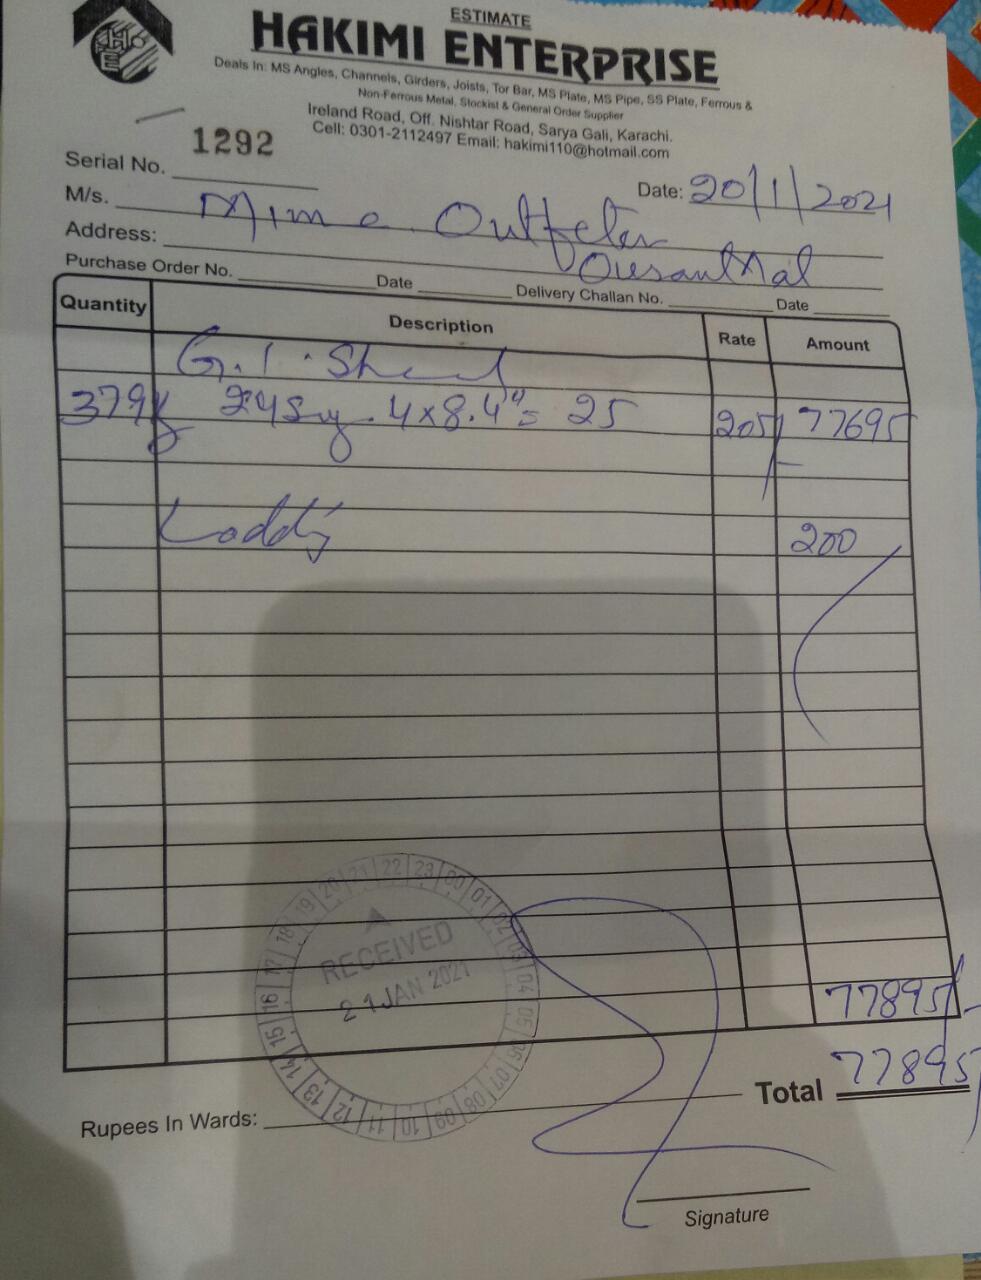 ESTIMATE
HAKIMI ENTERPRISE
Deals In: MS Angles, Channels, Girders, Joists, Tor Bar, MS Plate, MS Pipe, SS Plate, Ferrous &
Non-Ferrous Metal, Stockist & General Order Supplier
Ireland Road, Off. Nishtar Road, Sarya Gali, Karachi.
Cell: 0301-2112497 Email: hakimi110@hotmail.com
Serial No. 1292
Date: 20/1/2021
M/s.
Address:
Purchase Order No. Date Delivery Challan No. Date
Quantity Description Rate Amount
G.I.
4x8.4"= 25 205/- 77695
200
22 23 00 01 02 03 04 05 06 07 08 09 10 11 12 13 14 15 16 17 18 19 20 21
RECEIVED
21 JAN 2021
77895/-
Total 77895
Rupees In Wards:
Signature